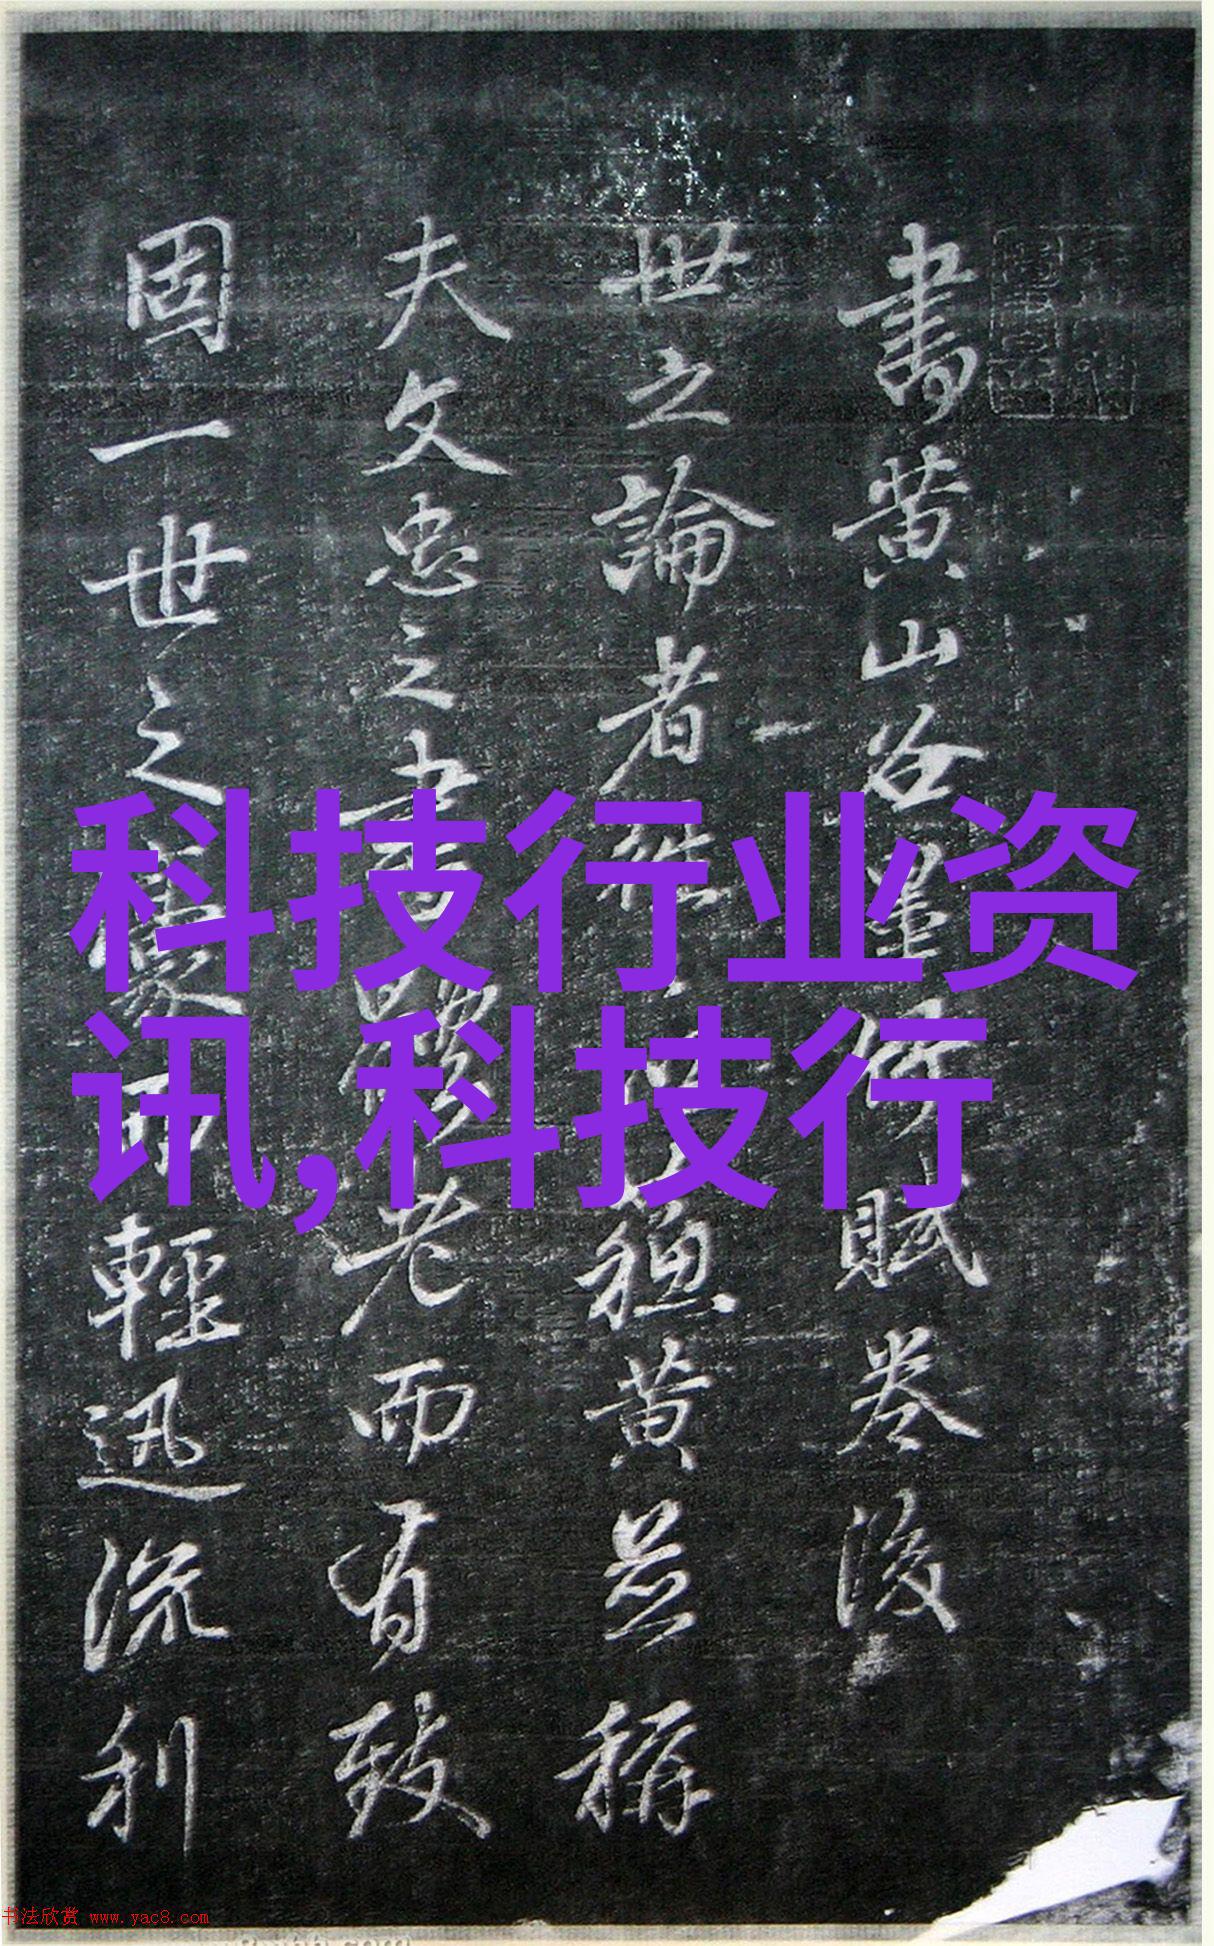 書黄山谷墨賦卷後
世之論者蘇黄並稱
夫文忠之書體老而有致
固一世之豪而輕迅流利
科技行业资
讯,科技行
书法欣赏 www.yac8.com